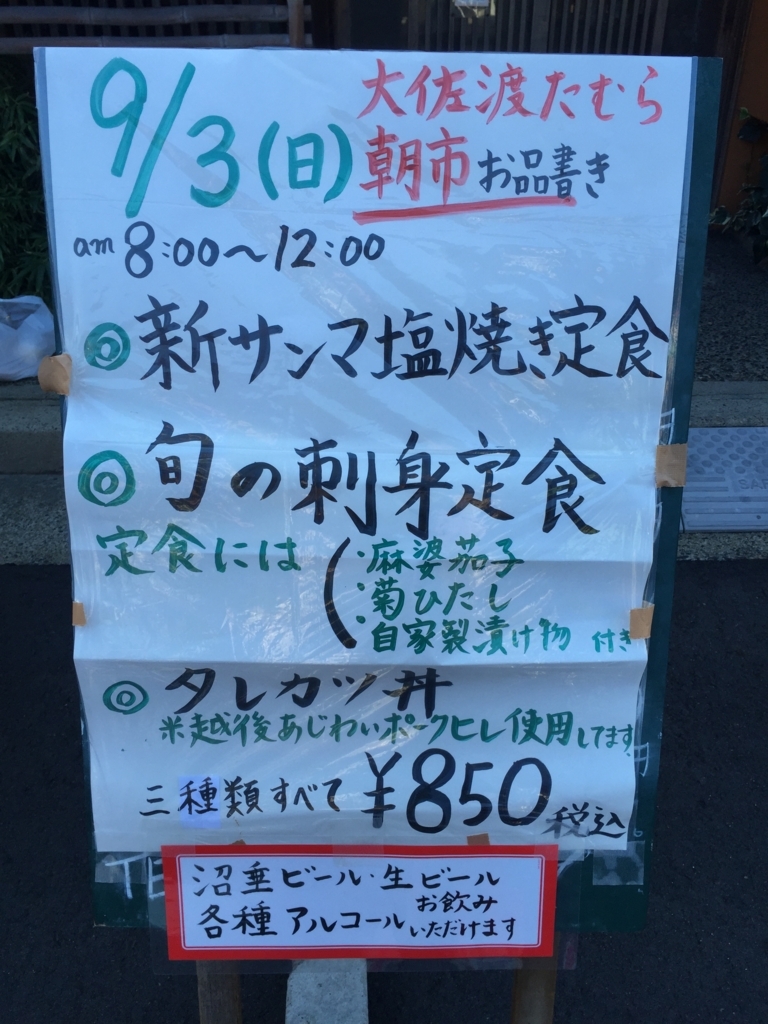 9/3(日) 大佐渡たむら
朝市お品書き
am 8:00〜12:00
◎新サンマ塩焼き定食
◎旬の刺身定食
定食には(・麻婆茄子
・菊ひたし
・自家製漬け物 付き
◎タレカツ丼
※越後あじわいポークヒレ使用してます
三種類すべて¥850税込
沼垂ビール・生ビール
各種アルコールお飲み
いただけます